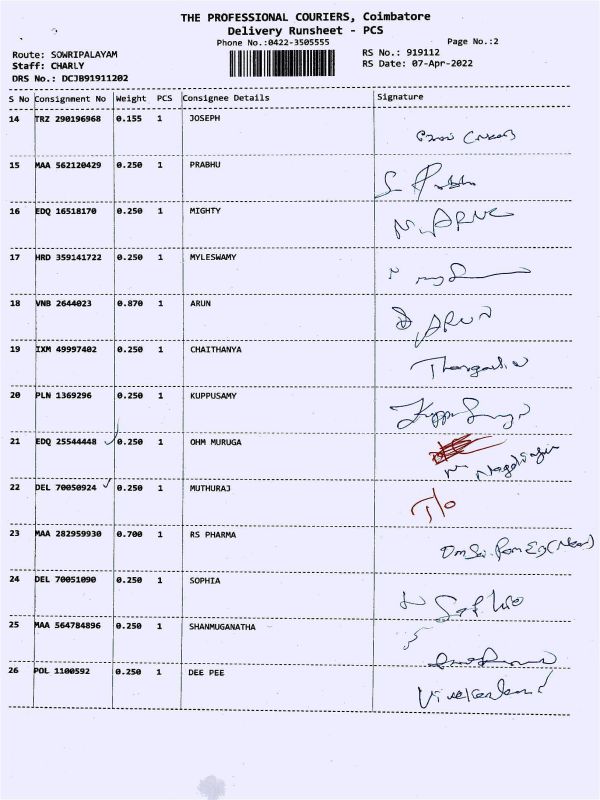 THE PROFESSIONAL COURIERS, Coimbatore
Delivery Runsheet - PCS
Phone No.:0422-3505555 Page No.:2
Route: SOWRIPALAYAM RS No.: 919112
Staff: CHARLY RS Date: 07-Apr-2022
DRS No.: DCJB91911202
S No Consignment No Weight PCS Consignee Details Signature
14 TRZ 290196968 0.155 1 JOSEPH
15 MAA 562120429 0.250 1 PRABHU S Prabhu
16 EDQ 16518170 0.250 1 MIGHTY
17 HRD 359141722 0.250 1 MYLESWAMY
18 VNB 2644023 0.870 1 ARUN ARUN
19 IXM 49997402 0.250 1 CHAITHANYA
20 PLN 1369296 0.250 1 KUPPUSAMY
21 EDQ 25544448 ✓ 0.250 1 OHM MURUGA
22 DEL 70050924 ✓ 0.250 1 MUTHURAJ T/o
23 MAA 282959930 0.700 1 RS PHARMA
24 DEL 70051090 0.250 1 SOPHIA
25 MAA 564784896 0.250 1 SHANMUGANATHA
26 POL 1100592 0.250 1 DEE PEE